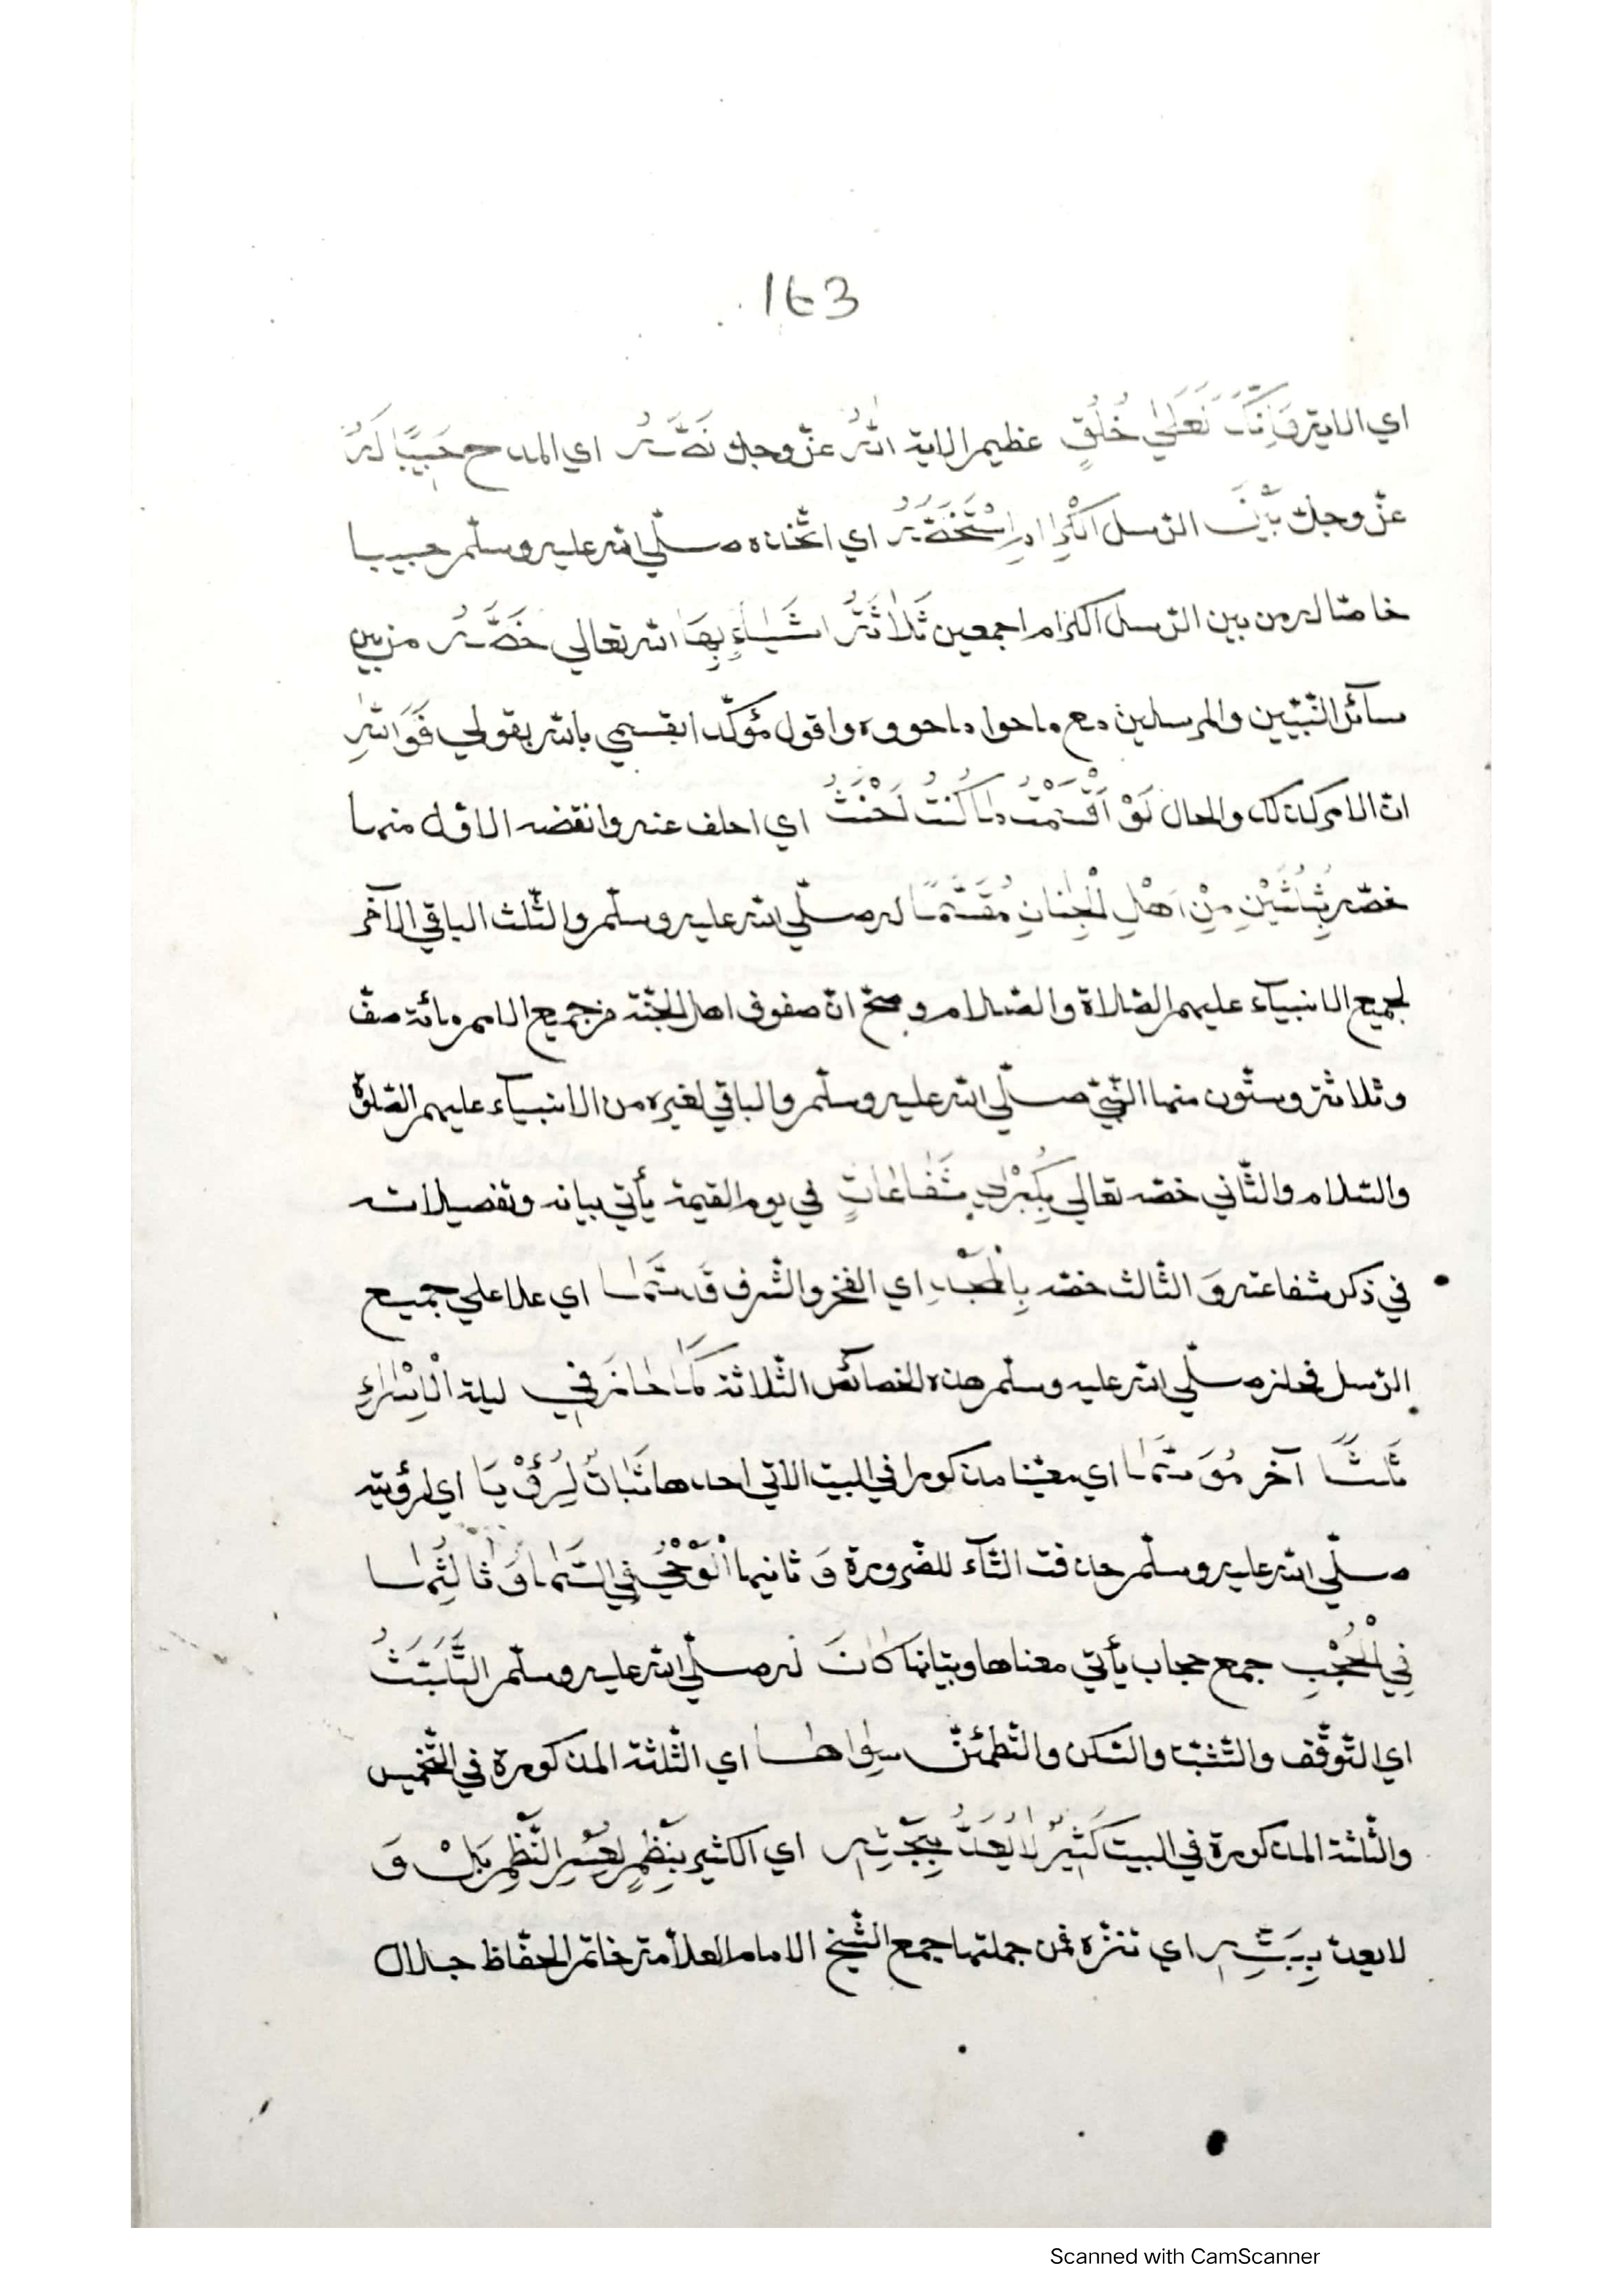 163
اي الاية وَإِنَّكَ لَعَلٰي خُلُقٍ عظيم الاية اللهُ عزّ وجلّ نَصَّهُ اي المدح حَبِيْبًا لَهُ
عزّ وجلّ بَيْنَ الرّسل الْكِرَامِ اِسْتَخَصَّهُ اي اتّخذه صلّي الله عليه وسلّم حبيبا
خاصّا له من بين الرّسل الكرام اجمعين ثَلَاثَةُ اشَياءٍ بِهَا الله تعالي خَصَّهُ من بين
سائر النّبيّين والمرسلين مع ما حوا ما حووه واقول مؤكّدا بقسمي بالله بقولي فَوَاللهِ
انّ الامر كذلك والحال لَوْ اَقْسَمْتُ مَا كُنْتُ اَحْنَثُ اي احلف عنه وانقضه الاوّل منها
خصّه بِثُلْثَيْنِ مِنْ اَهْلِ الْجِنَانِ مُقَسَّمًا له صلّي الله عليه وسلّم والثّلث الباقي الآخر
لجميع الانبياء عليهم الصّلاة والسّلام وصحّ انّ صفوف اهل الجنّة من جميع الامم مائة صفّ
وثلاثة وستّون منها النّبيّ صلّي الله عليه وسلّم والباقي لغيره من الانبياء عليهم الصّلوة
والسّلام والثّاني خصّه تعالي بِكُبْرٰي شَفَاعَاتٍ في يوم القيمة يأتي بيانه وتفصيلاته
في ذكر شفاعته وَ الثّالث خصّه بِالْمَجْدِ اي الفخر والشّرف قَدْ سَمَا اي علا علي جميع
الرّسل فحاز صلّي الله عليه وسلّم هذه الخصائص الثّلاثة كَمَا حَازَ فِي ليلة الْاِسْرَاءِ
ثَلَثًا آخر مُوَسَّمَا اي معيّنا مذكورا في البيت الاتي احدها ثَبَاتٌ لِرُؤْيَا اي لرؤيته
صلّي الله عليه وسلّم حذفت التّاء للضّرورة وَ ثانيها الْوَحْيُ فِي السَّمَا وَ ثَالِثُهَا
فِي الْحُجْبِ جمع حجاب يأتي معناها وبيانها كَانَ له صلّي الله عليه وسلّم التَّلَبُّثُ
اي التّوقّف والتّثبّت والسّكن والتّطمئنّ سِوَاهَا اي الثّلثة المذكورة في التّخميس
والثّلثة المذكورة في البيت كَثِيْرٌ لَا يُعَدُّ بِحَجْثِهِ اي الكثير بِنَظْمٍ لِعُسْرِ النَّظْمِ بَلْ وَ
لا يعدّ بِبَثِّهِ اي تنزّه فمن جملتها جمع الشّيخ الامام العلّامة خاتم الحفّاظ جلال
Scanned with CamScanner